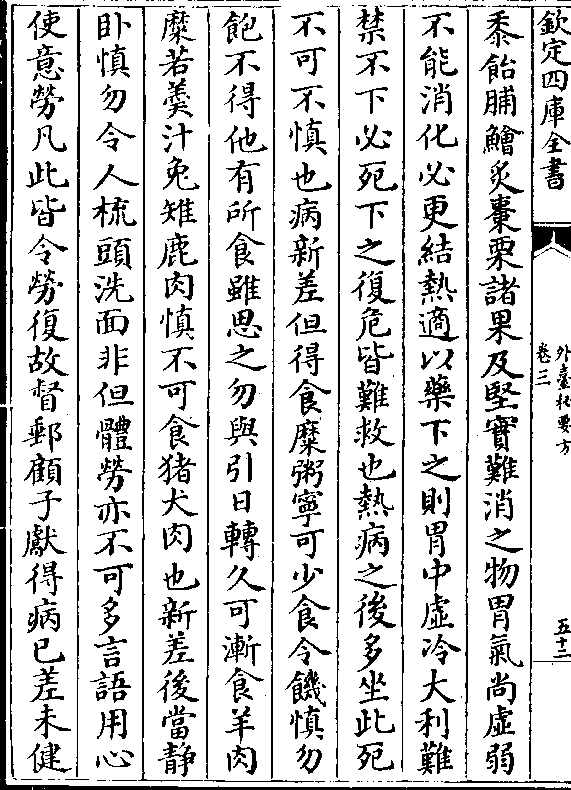 欽定四庫全書
外臺秘要方
卷三
五十二
黍飴脯鱠炙棗栗諸果及堅實難消之物胃氣尚虛弱
不能消化必更結熱適以藥下之則胃中虛冷大利難
禁不下必死下之復危皆難救也熱病之後多坐此死
不可不慎也病新差但得食糜粥寧可少食令饑慎勿
飽不得他有所食雖思之勿與引日轉久可漸食羊肉
糜若羮汁兔雉鹿肉慎不可食猪犬肉也新差後當静
卧慎勿令人梳頭洗面非但體勞亦不可多言語用心
使意勞凡此皆令勞復故督郵顧子獻得病已差未健